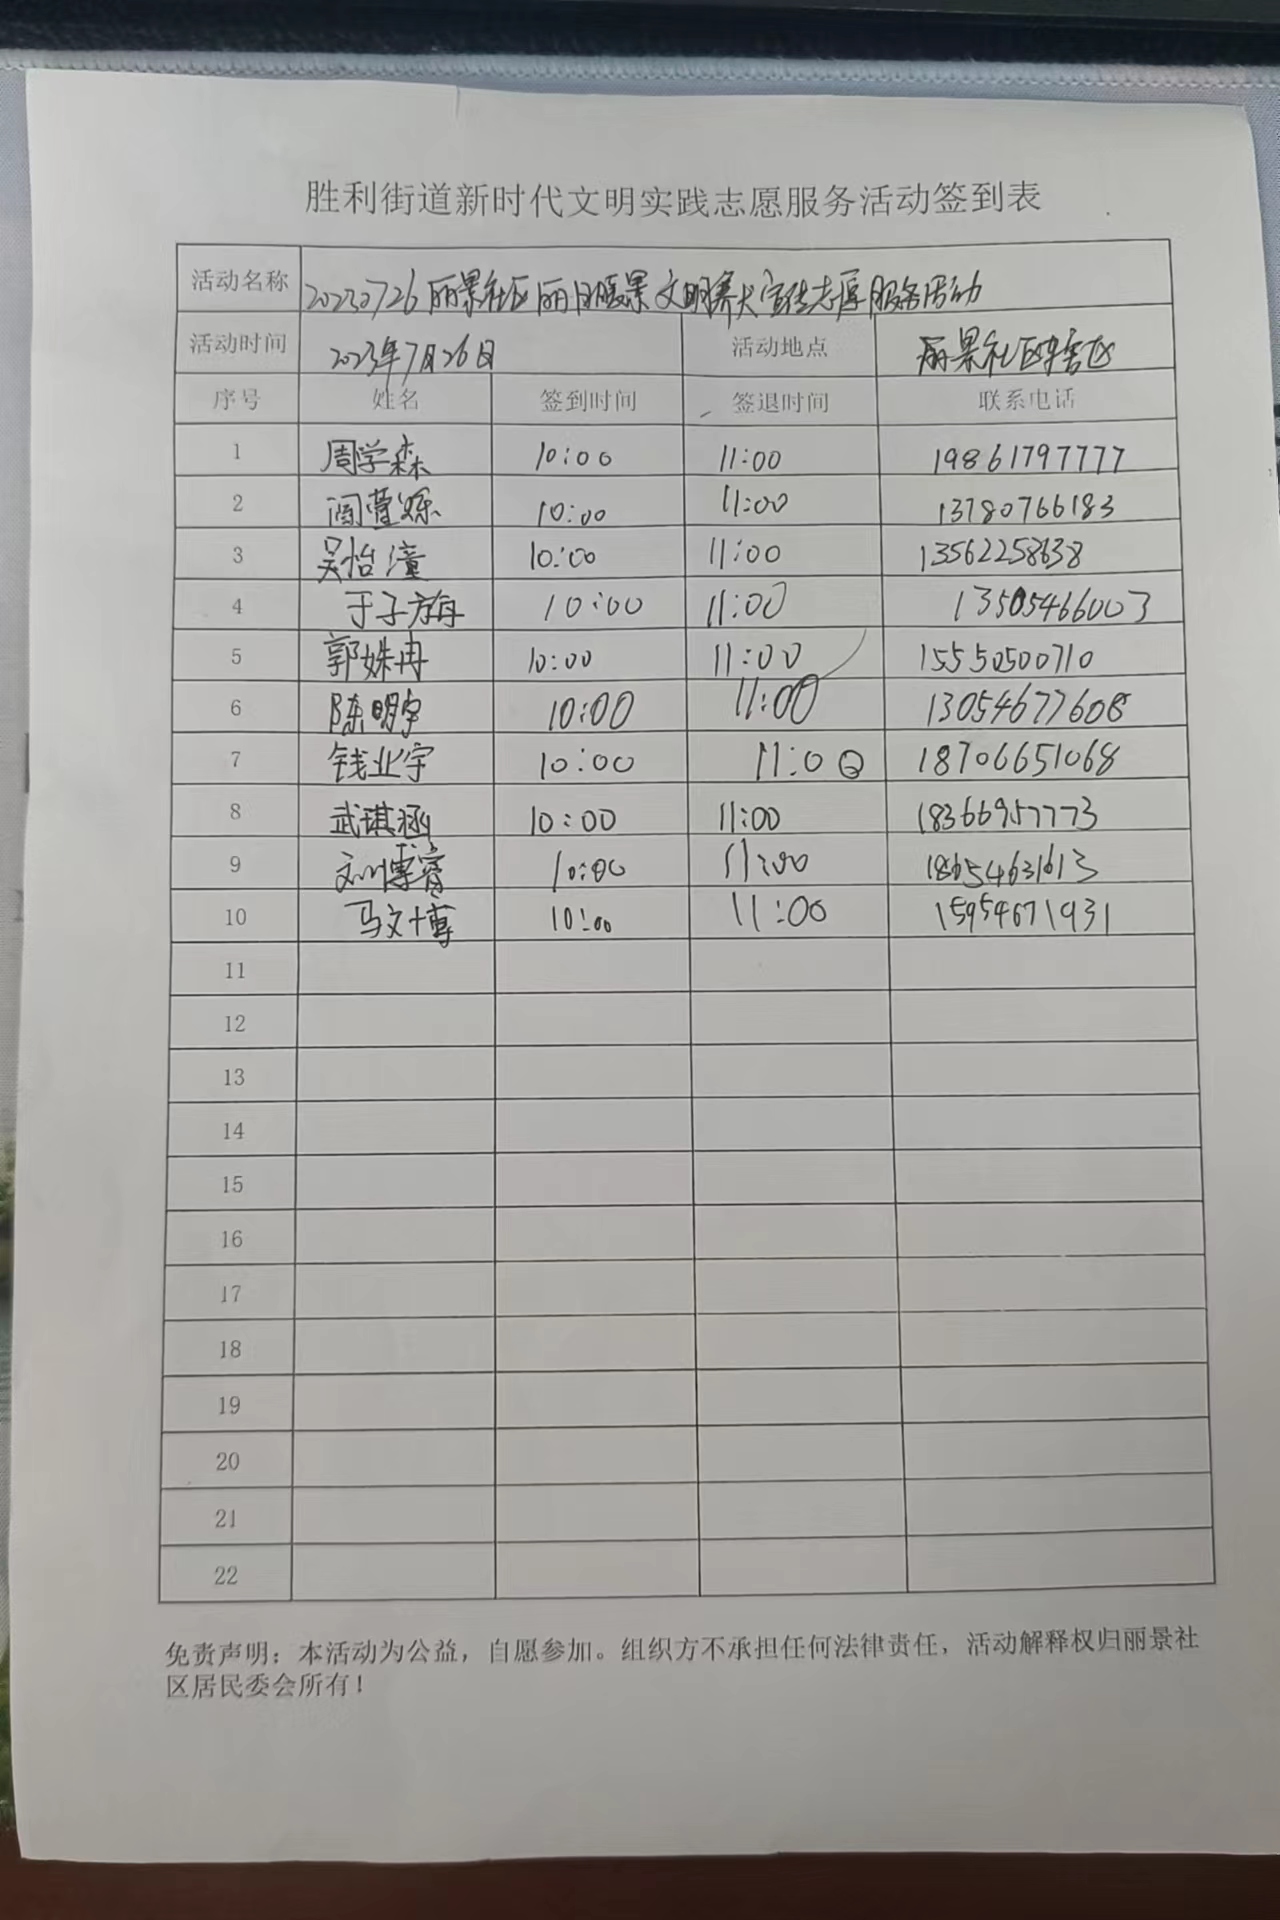 胜利街道新时代文明实践志愿服务活动签到表
活动名称 20230726丽景社区丽日暖景文明养犬宣传志愿服务活动
活动时间 2023年7月26日 活动地点 丽景社区辖区
序号 姓名 签到时间 签退时间 联系电话
1 周学森 10:00 11:00 19861797777
2 10:00 11:00 13780766183
3 吴怡潼 10:00 11:00 13562258638
4 10:00 11:00 13505466003
5 郭姝冉 10:00 11:00 15550500710
6 陈明宇 10:00 11:00 13054677608
7 钱业宇 10:00 11:00 18706651068
8 武琪涵 10:00 11:00 18366957773
9 刘博睿 10:00 11:00 18654631613
10 马文博 10:00 11:00 15954671931
11
12
13
14
15
16
17
18
19
20
21
22
免责声明：本活动为公益，自愿参加。组织方不承担任何法律责任，活动解释权归丽景社
区居民委会所有！